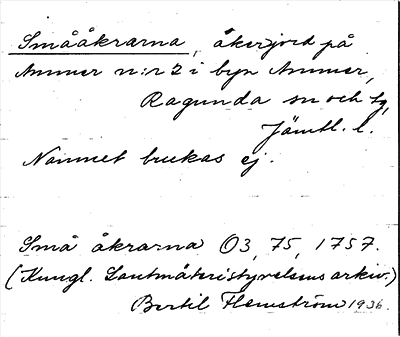 Smååkrarna, åkerjord på
Ammer n:r 2 i byn Ammer,
Ragunda sn och tg,
Jämtl. l.
Namnet brukas ej.
Små åkrarna O3, 75, 1757.
(Kungl. Lantmäteristyrelsens arkiv.)
Bertil Flemström 1936.